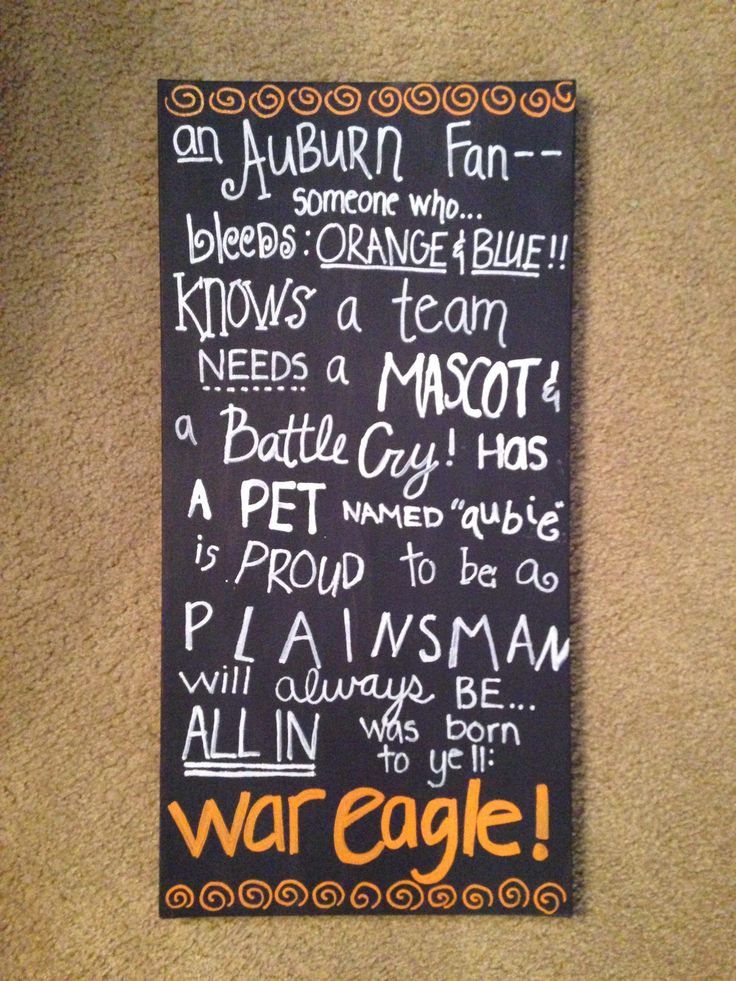 an AUBURN Fan--
someone who...
bleeds: ORANGE & BLUE!!
KNOWS a team
NEEDS a MASCOT &
a Battle Cry! HAS
A PET NAMED "aubie"
is PROUD to be a
PLAINSMAN
will always BE...
ALL IN was born
to yell:
war eagle!